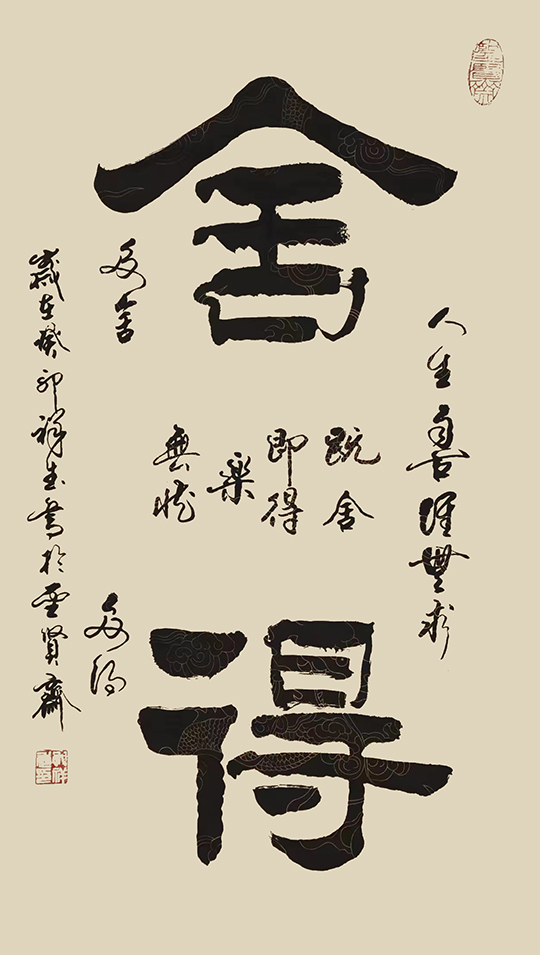 舍
得
人生無求
既舍
即得
樂
無
多舍
多得
歲在癸卯祥書於聖賢齋